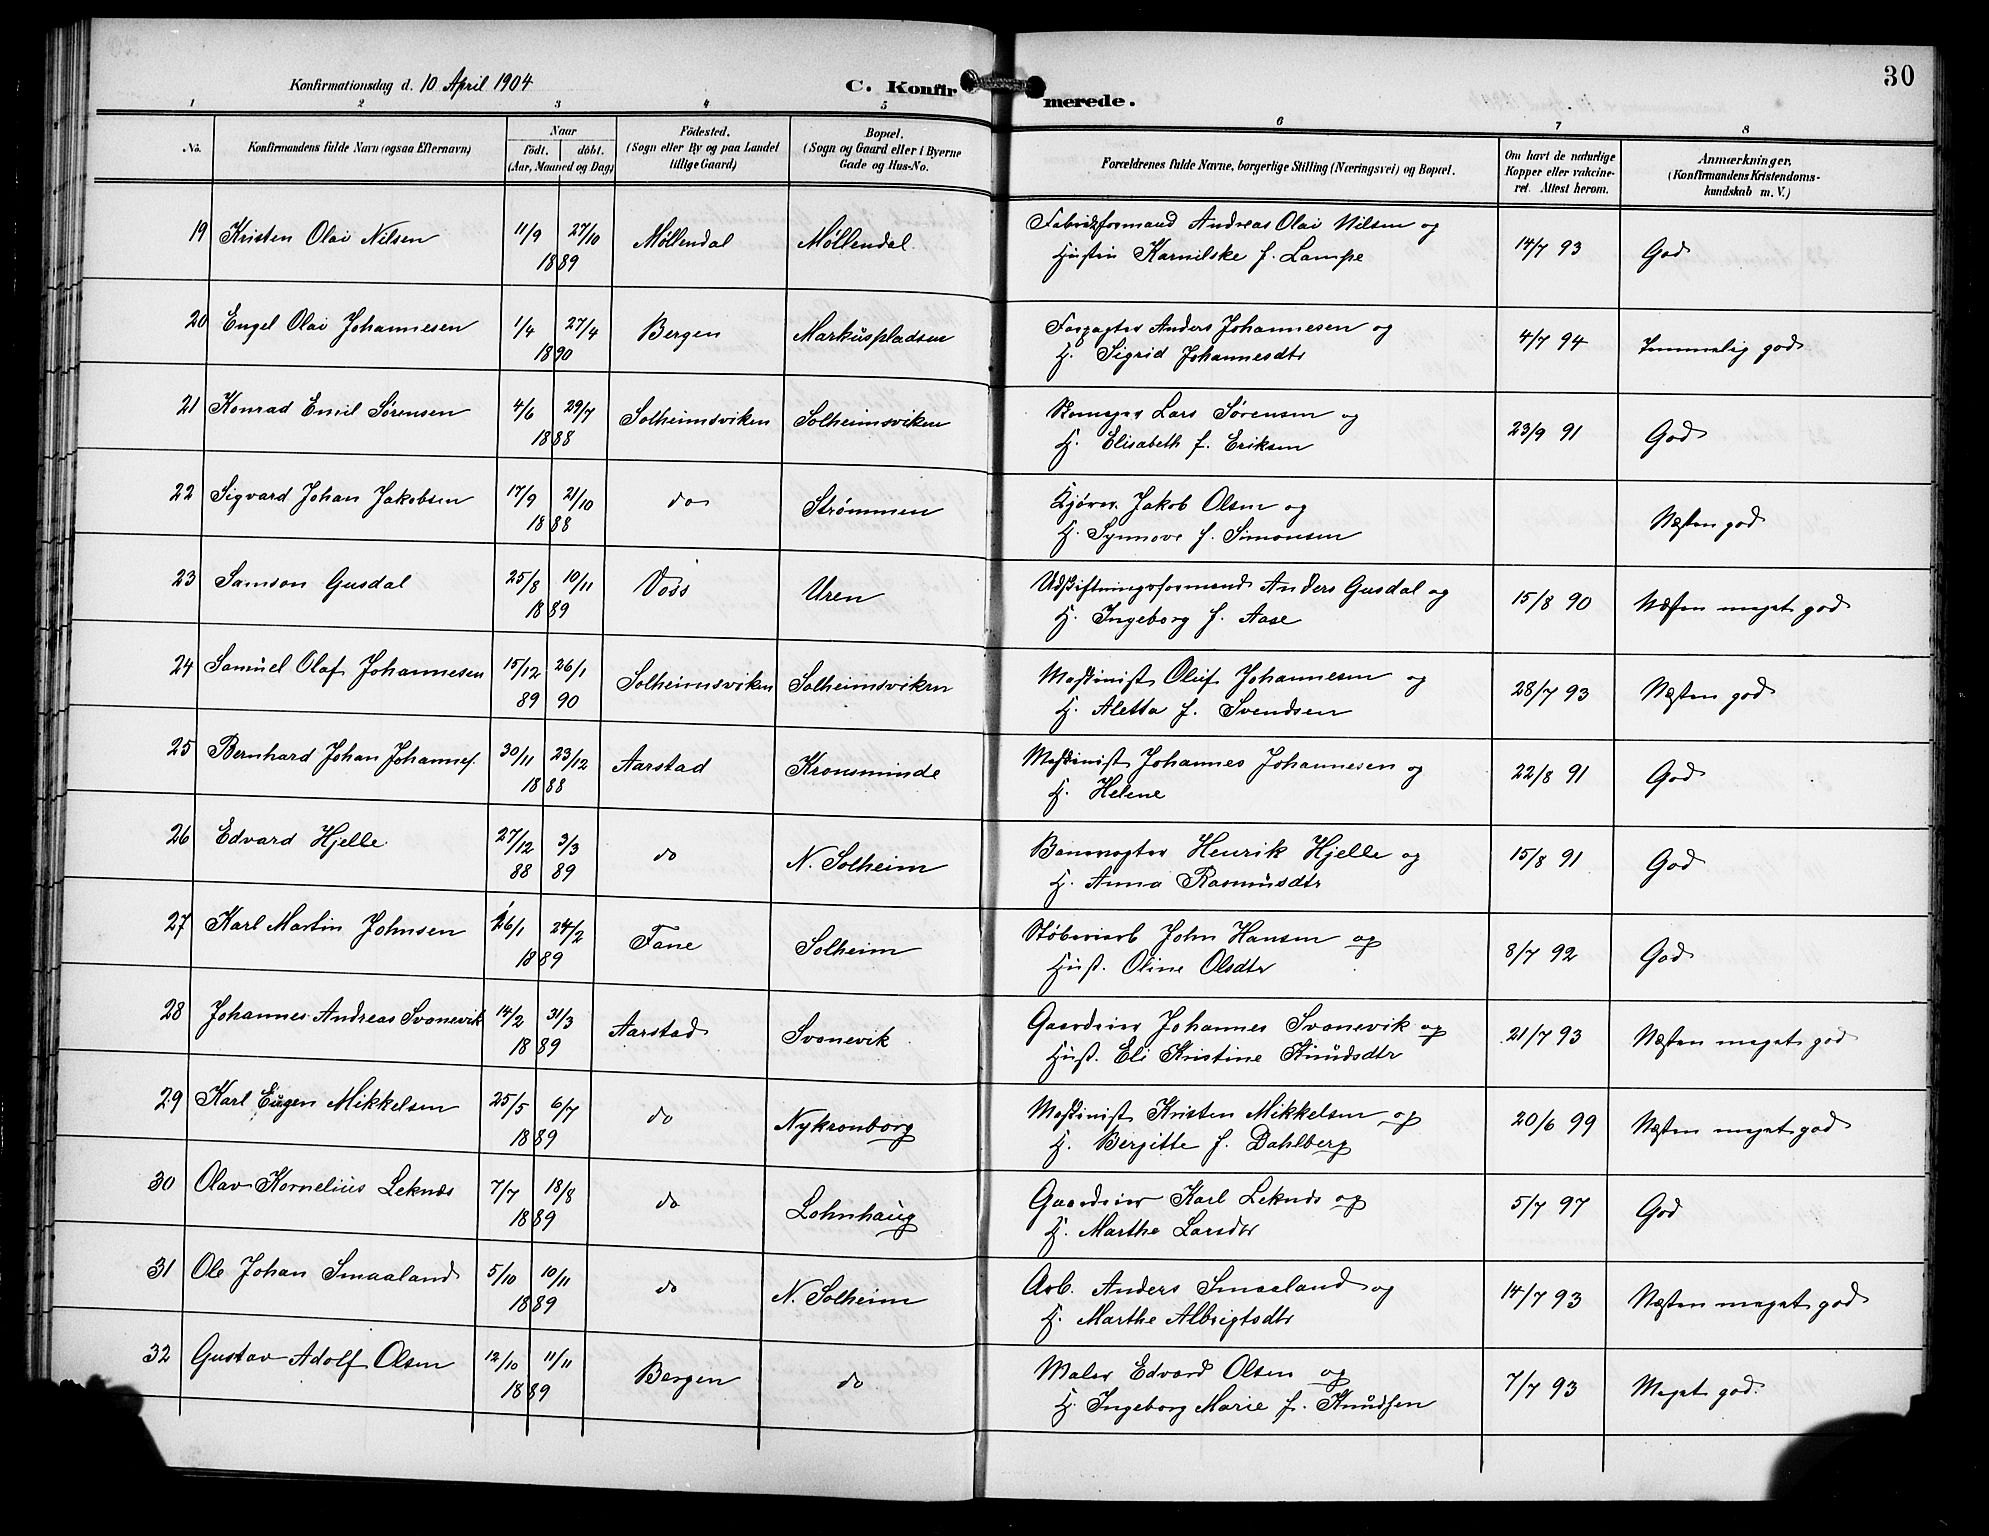 30
Konfirmationsdag d. 10 April 1904
C. Konfirmerede.
1 2 3 4 5 6 7 8
No.
Konfirmandens fulde Navn (ogsaa Efternavn)
Naar
Födt. döbt.
(Aar, Maaned og Dag)
Födested.
(Sogn eller By og paa Landet
tillige Gaard)
Bopæl.
(Sogn og Gaard eller i Byerne
Gade og Hus-No.
Forældrenes fulde Navne, borgerlige Stilling (Næringsvei) og Bopæl.
Om havt de naturlige
Kopper eller vakcine-
ret. Attest herom.
Anmærkninger.
(Konfirmandens Kristendoms-
kundskab m. V.)
19 Kristen Olai Nilsen 11/9 27/10 Møllendal Møllendal Fabrikformand Andreas Olai Nilsen og 14/7 93 God
1889 Hustru Karnilske f. Lampe
20 Engel Olai Johannesen 1/4 27/4 Bergen Markuspladsen Anders Johannesen og 4/7 94 Temmelig god
1890 H. Sigrid Johannesdtr
21 Konrad Emil Sørensen 4/6 29/7 Solheimsviken Solheimsviken Lars Sørensen og 23/9 91 God
1888 H. Elisabeth f. Eriksen
22 Sigvard Johan Jakobsen 17/9 21/10 do Strømmen Kjører Jakob Olsen og Næsten god
1888 H. Synnove f. Simonsen
23 Samson Gusdal 25/8 10/11 Voss Uren Udskiftningsformand Anders Gusdal og 15/8 90 Næsten meget god
1889 H. Ingeborg f. Aase
24 Samuel Olaf Johannesen 15/12 26/1 Solheimsviken Solheimsviken Maskinist Oluf Johannesen og 28/7 93 Næsten god
89 90 H. Aletta f. Svendsen
25 Bernhard Johan Johannes. 30/11 23/12 Aarstad Kronsminde Maskinist Johannes Johannesen og 22/8 91 God
1888 H. Helene
26 Edvard Hjelle 27/12 3/3 do N. Solheim Banevogter Henrik Hjelle og 15/8 91 God
88 89 H. Anna Rasmusdtr
27 Karl Martin Johnsen 26/1 24/2 Fane Solheim Støberiarb John Hansen og 8/7 92 God
1889 Hust. Oline Olsdtr
28 Johannes Andreas Svonevik 14/2 31/3 Aarstad Svonevik Gaardeier Johannes Svonevik og 21/7 93 Næsten meget god
1889 Hust. Eli Kristine Knudsdtr
29 Karl Eugen Mikkelsen 25/5 6/7 do Nykronborg Maskinist Kristen Mikkelsen og 20/6 99 Næsten meget god
1889 H. Bergitte f. Dahlberg
30 Olav Kornelius Leknes 7/7 18/8 do Lohnhaug Gaardeier Karl Leknes og 5/7 97 God
1889 H. Marthe Larsdtr
31 Ole Johan Smaaland 5/10 10/11 do N. Solheim Arb. Anders Smaaland og 14/7 93 Næsten meget god
1889 H. Marthe Albrigtsdtr
32 Gustav Adolf Olsen 12/10 11/11 Bergen do Maler Edvard Olsen og 7/7 93 Meget god.
1889 H. Ingeborg Marie f. Knudsen